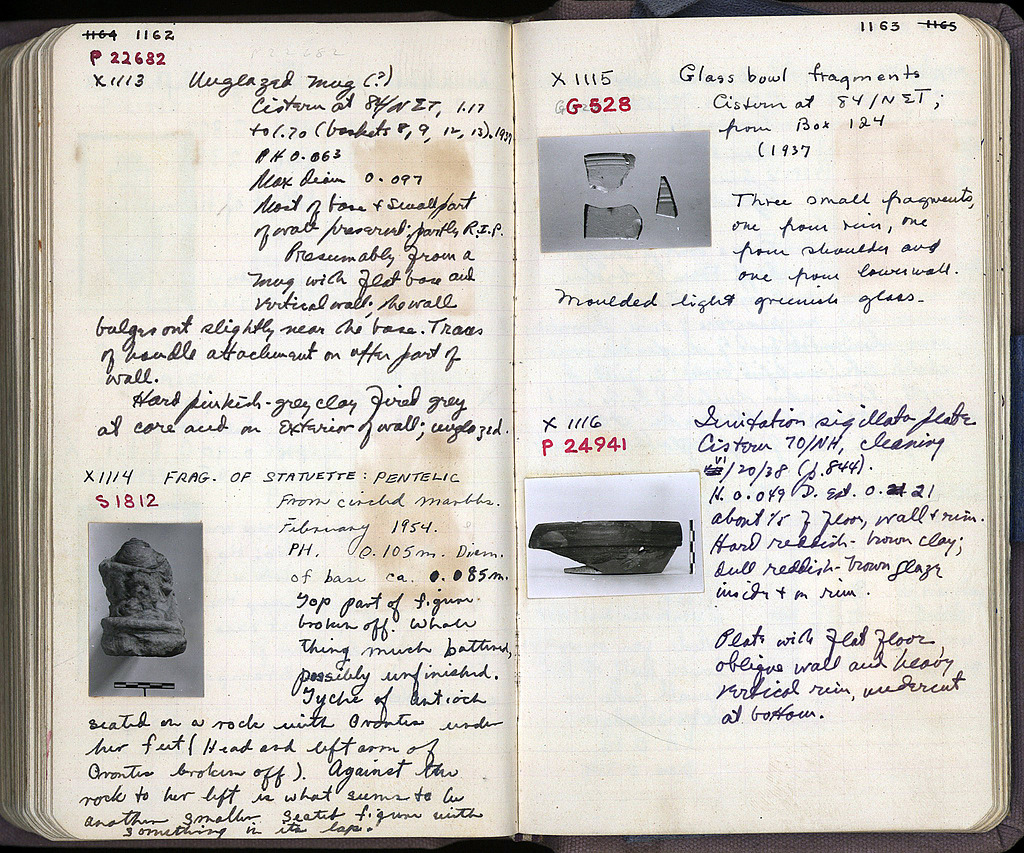 1164 1162
P 22682
X 1113 Unglazed mug (?)
Cistern at 84/NΣT, 1.17
to 1.70 (baskets 8, 9, 12, 13). 1937
PH 0.063
Max Diam 0.097
Most of base + small part
of wall preserved; partly R.I.P.
Presumably from a
mug with flat base and
vertical wall; the wall
bulges out slightly near the base. Traces
of handle attachment on upper part of
wall.
Hard pinkish-grey clay fired grey
at core and on exterior of wall; unglazed.
X 1114 FRAG. OF STATUETTE: PENTELIC
S 1812
From circled marbles.
February 1954.
PH. 0.105 m. Diam.
of base ca. 0.085 m.
Top part of figure
broken off. Whole
thing much battered,
possibly unfinished.
Tyche of Antioch
seated on a rock with Orontes under
her feet (Head and left arm of
Orontes broken off). Against the
rock to her left is what seems to be
another smaller seated figure with
something in its lap.
1163 1165
X 1115 Glass bowl fragments
G 528
Cistern at 84/NΣT;
from Box 124
(1937
Three small fragments,
one from rim, one
from shoulder and
one from lower wall.
Moulded light greenish glass.
X 1116
P 24941
Imitation sigillata plate
Cistern 70/NH, cleaning
VI/20/38 (p. 844).
H. 0.049 D. est. 0.21
about 1/5 of floor, wall + rim.
Hard reddish-brown clay;
dull reddish-brown glaze
inside + on rim.
Plate with flat floor
oblique wall and heavy
vertical rim, undercut
at bottom.